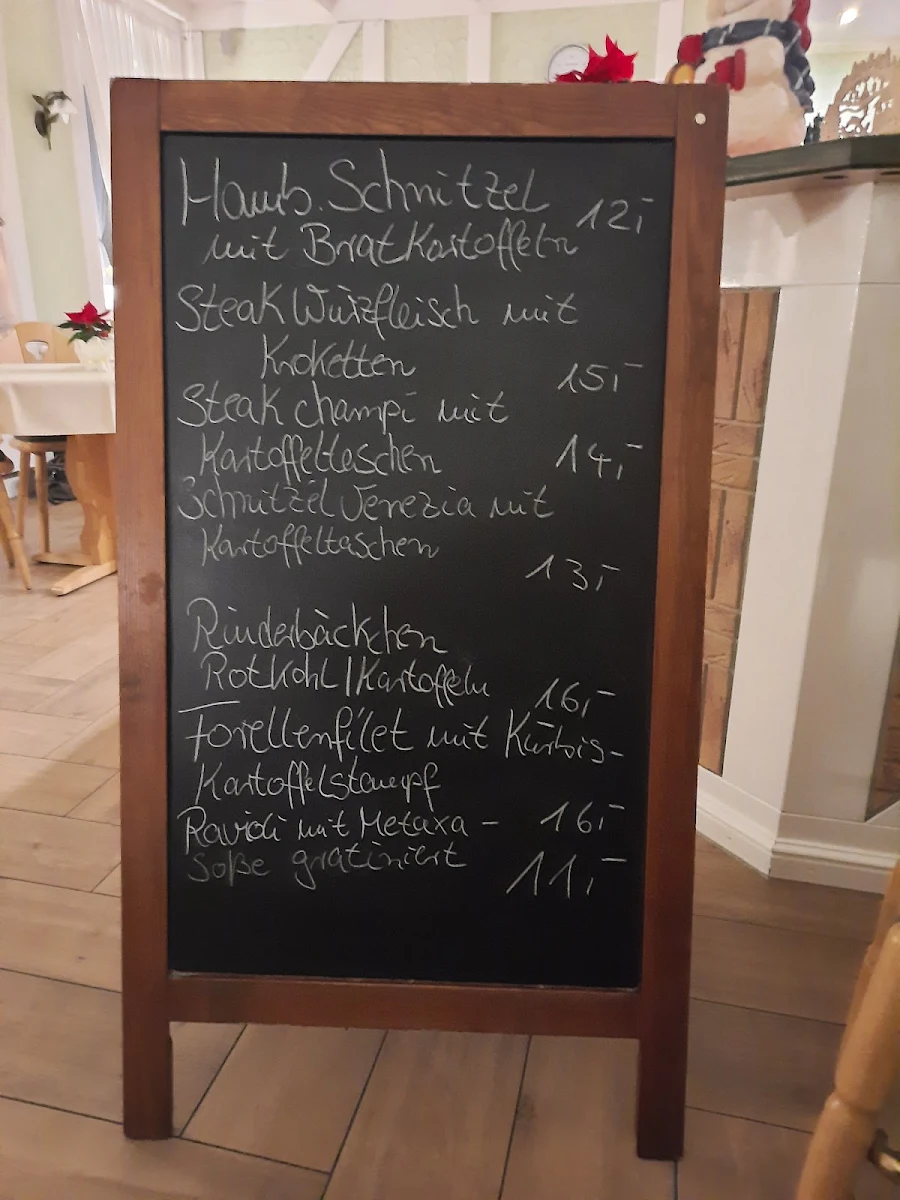 Hamb. Schnitzel 12,-
mit Bratkartoffeln
Steak Würzfleisch mit
Kroketten 15,-
Steak champi mit
Kartoffeltaschen 14,-
Schnitzel Venezia mit
Kartoffeltaschen
13,-
Rinderbäckchen
Rotkohl/Kartoffeln 16,-
Forellenfilet mit Kürbis-
Kartoffelstampf
Ravioli mit Metaxa- 16,-
Soße gratiniert 11,-